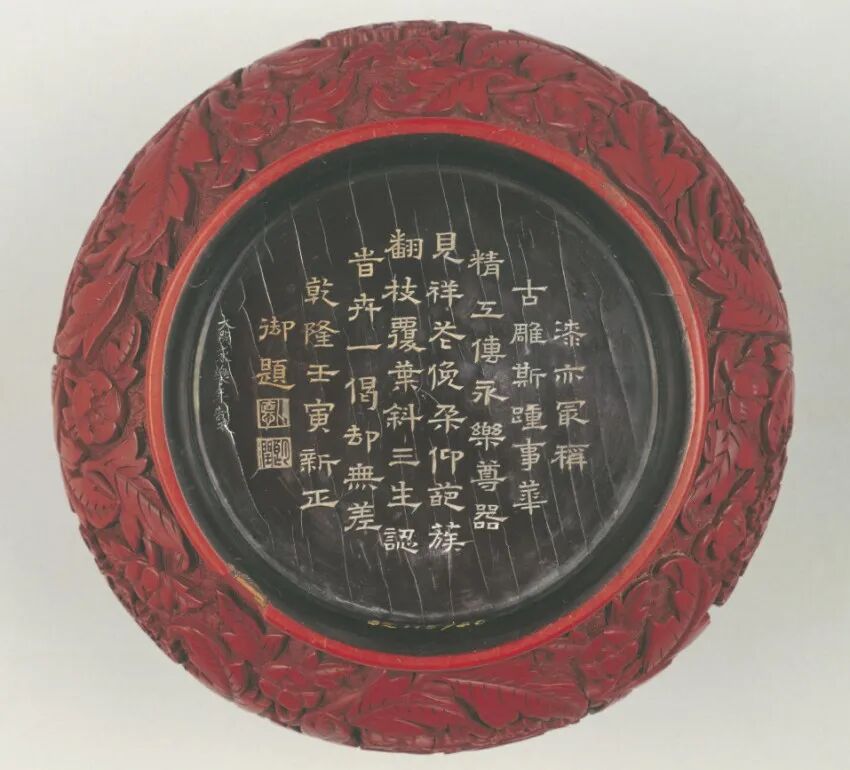 漆亦冣稱
古雕斯踵事華
精工傳永樂尊器
見祥花俛朵仰葩蔟
翻枝覆葉斜三生認
昔卉一偈却無差
乾隆壬寅新正
御題
大明永樂年製